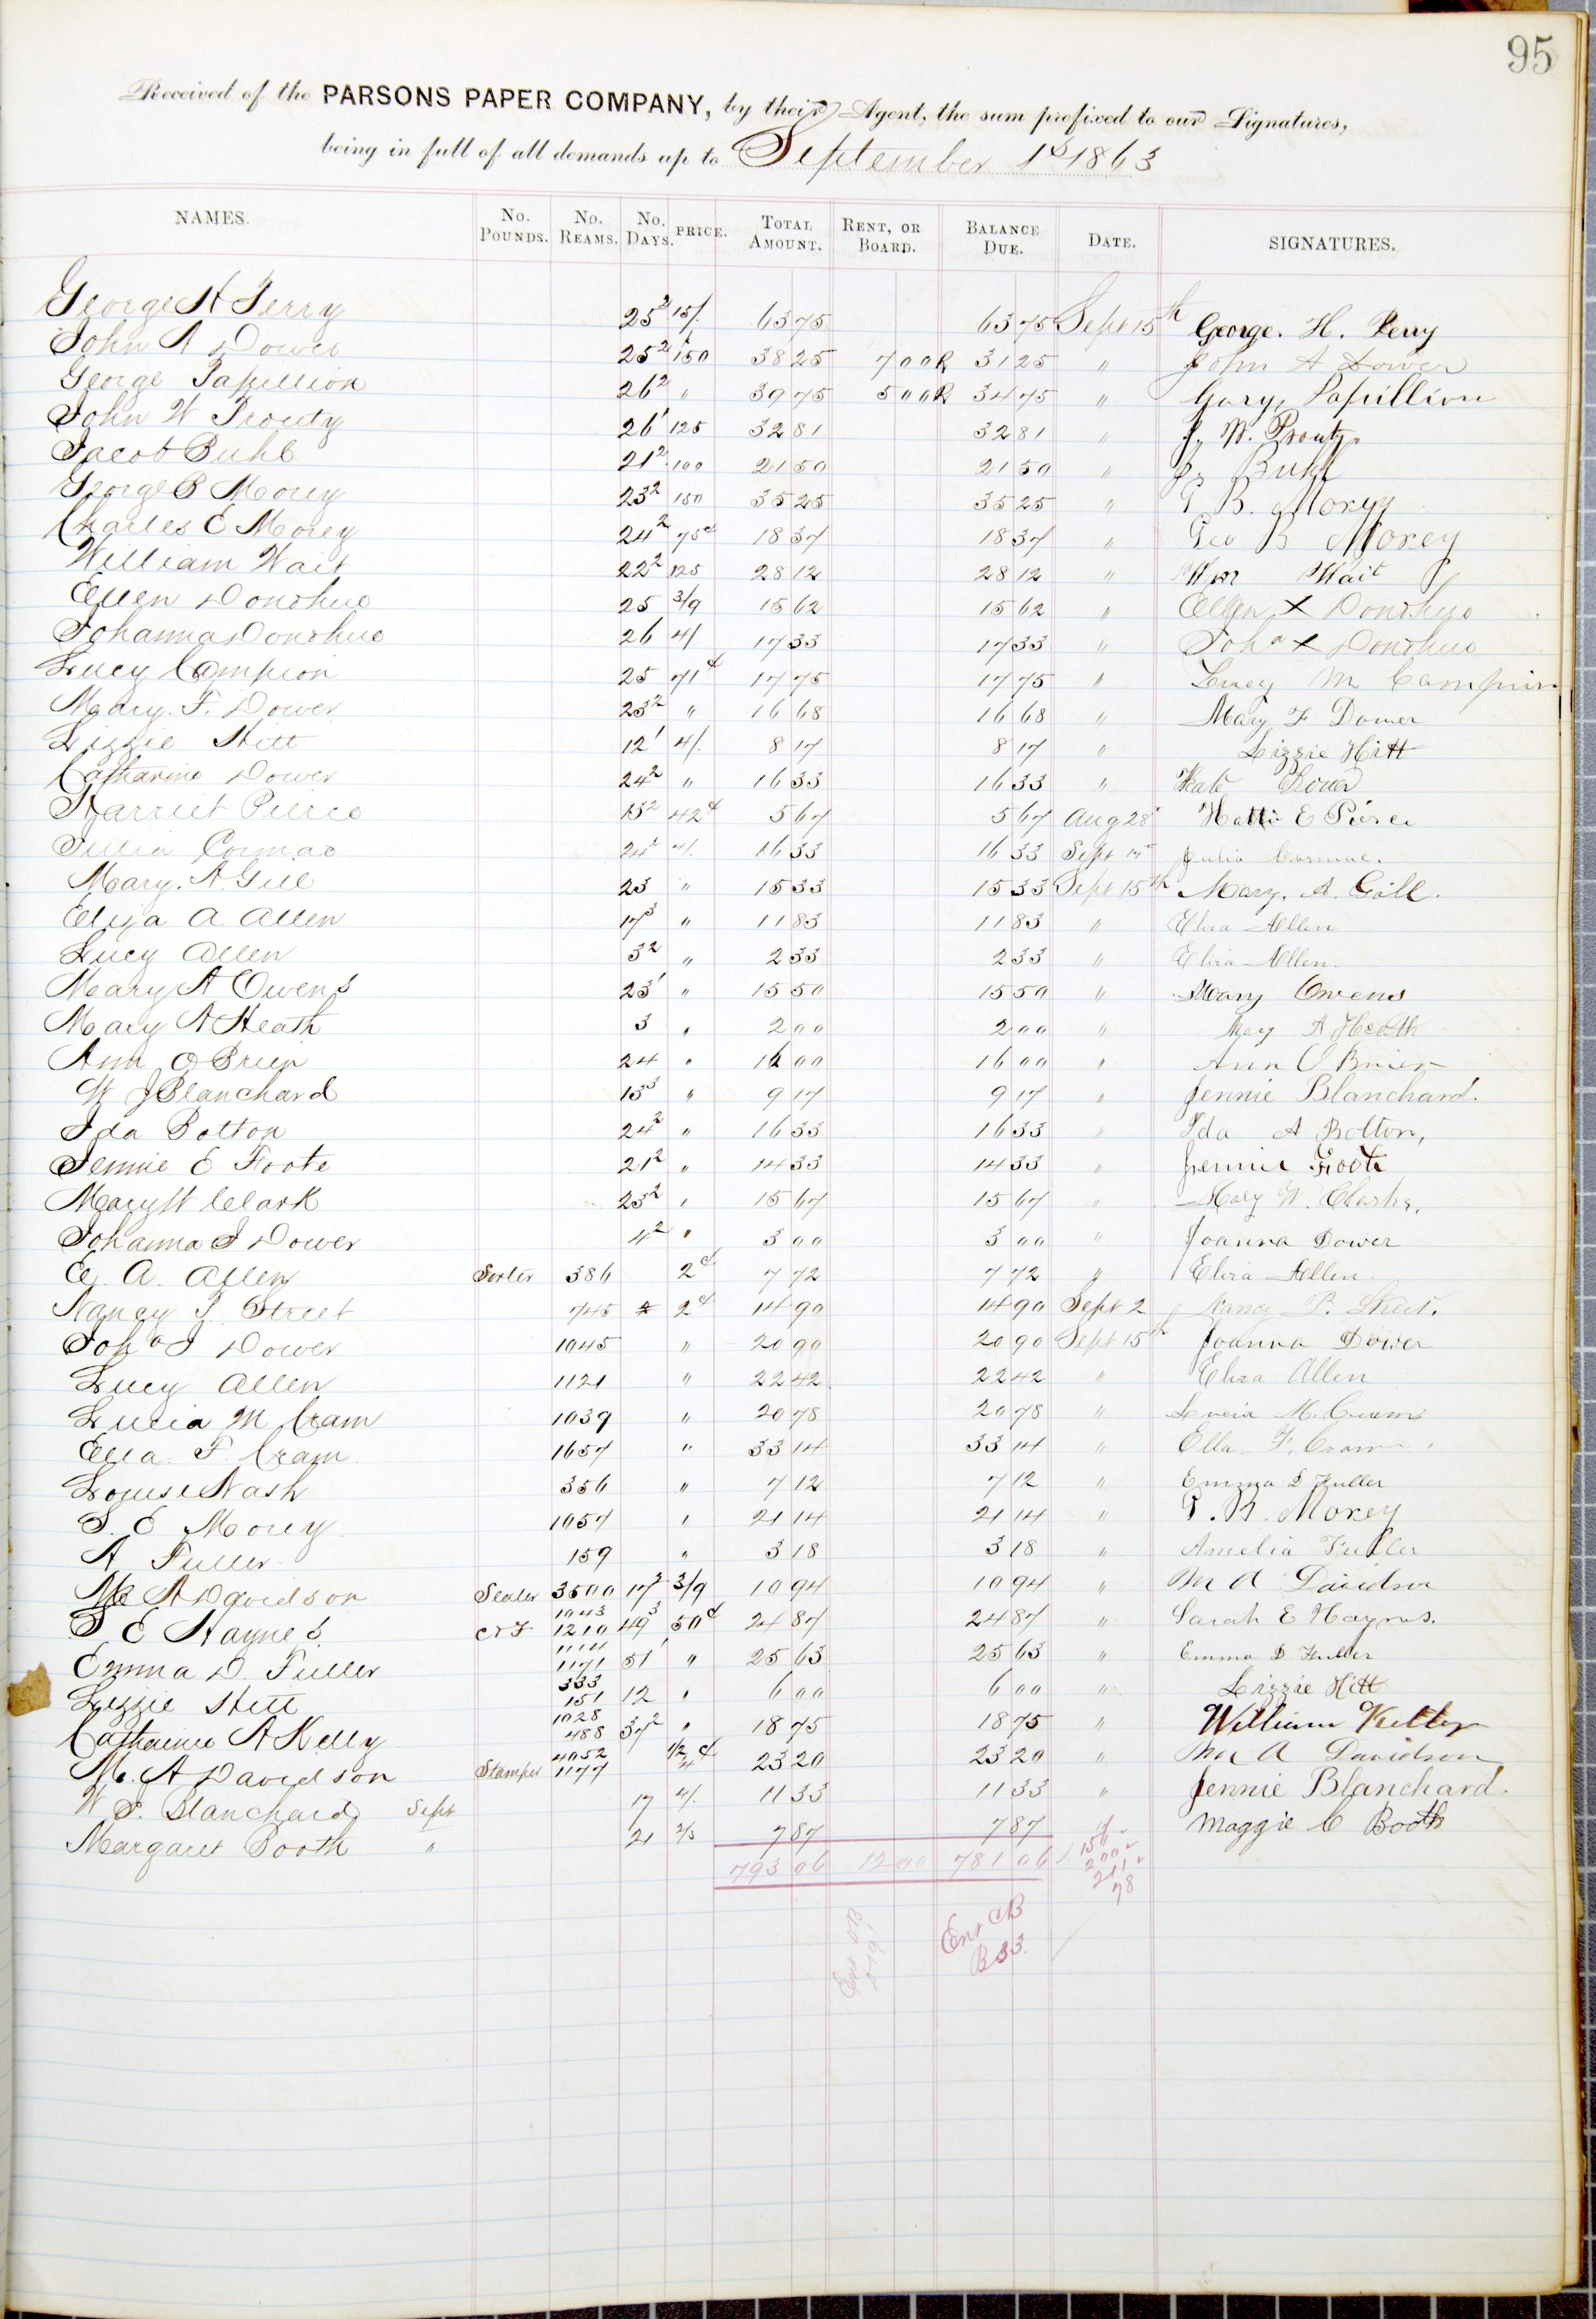 95
Received of the PARSONS PAPER COMPANY, by their Agent, the sum prefixed to our Signatures,
being in full of all demands up to September 1st 1863
NAMES. No. Pounds. No. Reams. No. Days. PRICE. Total Amount. Rent, or Board. Balance Due. Date. SIGNATURES.
George H Perry 25 2 15/. 63 75 63 75 Sept 15th George. H. Perry
John A Dower 25 2 150 38 25 7 00 R 31 25 " John A Dower
George Papillion 26 2 " 39 75 5 00 R 34 75 " Papillion
John W Prouty 26 1 125 32 81 32 81 " J. W. Prouty
Jacob Buhl 21 2 100 21 50 21 50 " J. Buhl
George B Morey 23 2 150 35 25 35 25 " G B. Morey
Charles E Morey 24 2 75c 18 37 18 37 " Geo B Morey
William Wait 22 2 125 28 12 28 12 " Wm Wait
Ellen Donohue 25 3/9 15 62 15 62 " Ellen X Donohue
Johanna Donohue 26 4/ 17 33 17 33 " Joha X Donohue
Lucy Campion 25 71c 17 75 17 75 " Lucy M Campion
Mary. F. Dower 23 2 " 16 68 16 68 " Mary F Dower
Lizzie Hitt 12 1 4/. 8 17 8 17 " Lizzie Hitt
Catharine Dower 24 2 " 16 33 16 33 " Kate Dower
Harriet Pierce 13 2 42c 5 67 5 67 Aug 28 Hattie E Pierce
Julia Cormac 24 2 4/. 16 33 16 33 Sept Julia Cormac.
Mary. A. Gill 23 " 15 33 15 33 Sept 15th Mary. A. Gill.
Eliza A Allen 17 3 " 11 83 11 83 " Eliza Allen
Lucy Allen 3 2 " 2 33 2 33 " Eliza Allen.
Mary A Owens 23 1 " 15 50 15 50 " Mary Owens
Mary A Heath 3 " 2 00 2 00 " Mary A Heath
Ann O Brien 24 " 16 00 16 00 " Ann O Brien
W J Blanchard 13 3 " 9 17 9 17 " Jennie Blanchard.
Ida Bolton 24 2 " 16 33 16 33 " Ida A Bolton,
Jennie E Foote 21 2 " 14 33 14 33 " Jennie Foote
Mary W Clark 23 2 " 15 67 15 67 " Mary W. Clarke,
Johanna J Dower 4 2 " 3 00 3 00 " Joanna Dower
E. A. Allen Sorter 386 2c 7 72 7 72 " Eliza Allen
Nancy P. Street 745 2c 14 90 14 90 Sept 2 Nancy P. Street.
Joha J Dower 1045 " 20 90 20 90 Sept 15th Joanna Dower
Lucy Allen 1121 " 22 42 22 42 " Eliza Allen
Lucia M Cram 1039 " 20 78 20 78 " Lucia M. Cram
Ella F. Cram 1657 " 33 14 33 14 " Ella F. Cram
Louise Nash 356 " 7 12 7 12 " Emma D Fuller
S. E Morey 1057 " 21 14 21 14 " G. B. Morey
A Fuller 159 " 3 18 3 18 " Amelia Fuller
M. A Davidson Sealer 3500 17 2 3/9 10 94 10 94 " M A Davidson
S E Haynes C & F 1043 1210 49 3 50c 24 87 24 87 " Sarah E Haynes.
Emma D. Fuller 1114 1171 51 1 " 25 63 25 63 " Emma D Fuller
Lizzie Hitt 333 151 12 " 6 00 6 00 " Lizzie Hitt
Catharine A Kelly 1028 488 37 2 " 18 75 18 75 " William Kelley
M. A Davidson Stamper 4052 1177 1/2 c 23 20 23 20 " M A Davidson
W J. Blanchard Sept 17 4/. 11 33 11 33 " Jennie Blanchard.
Margaret Booth " 21 2/3 7 87 7 87 Maggie C Booth
793 06 12 00 781 06
156
200
211
78
Ent CB
B 33